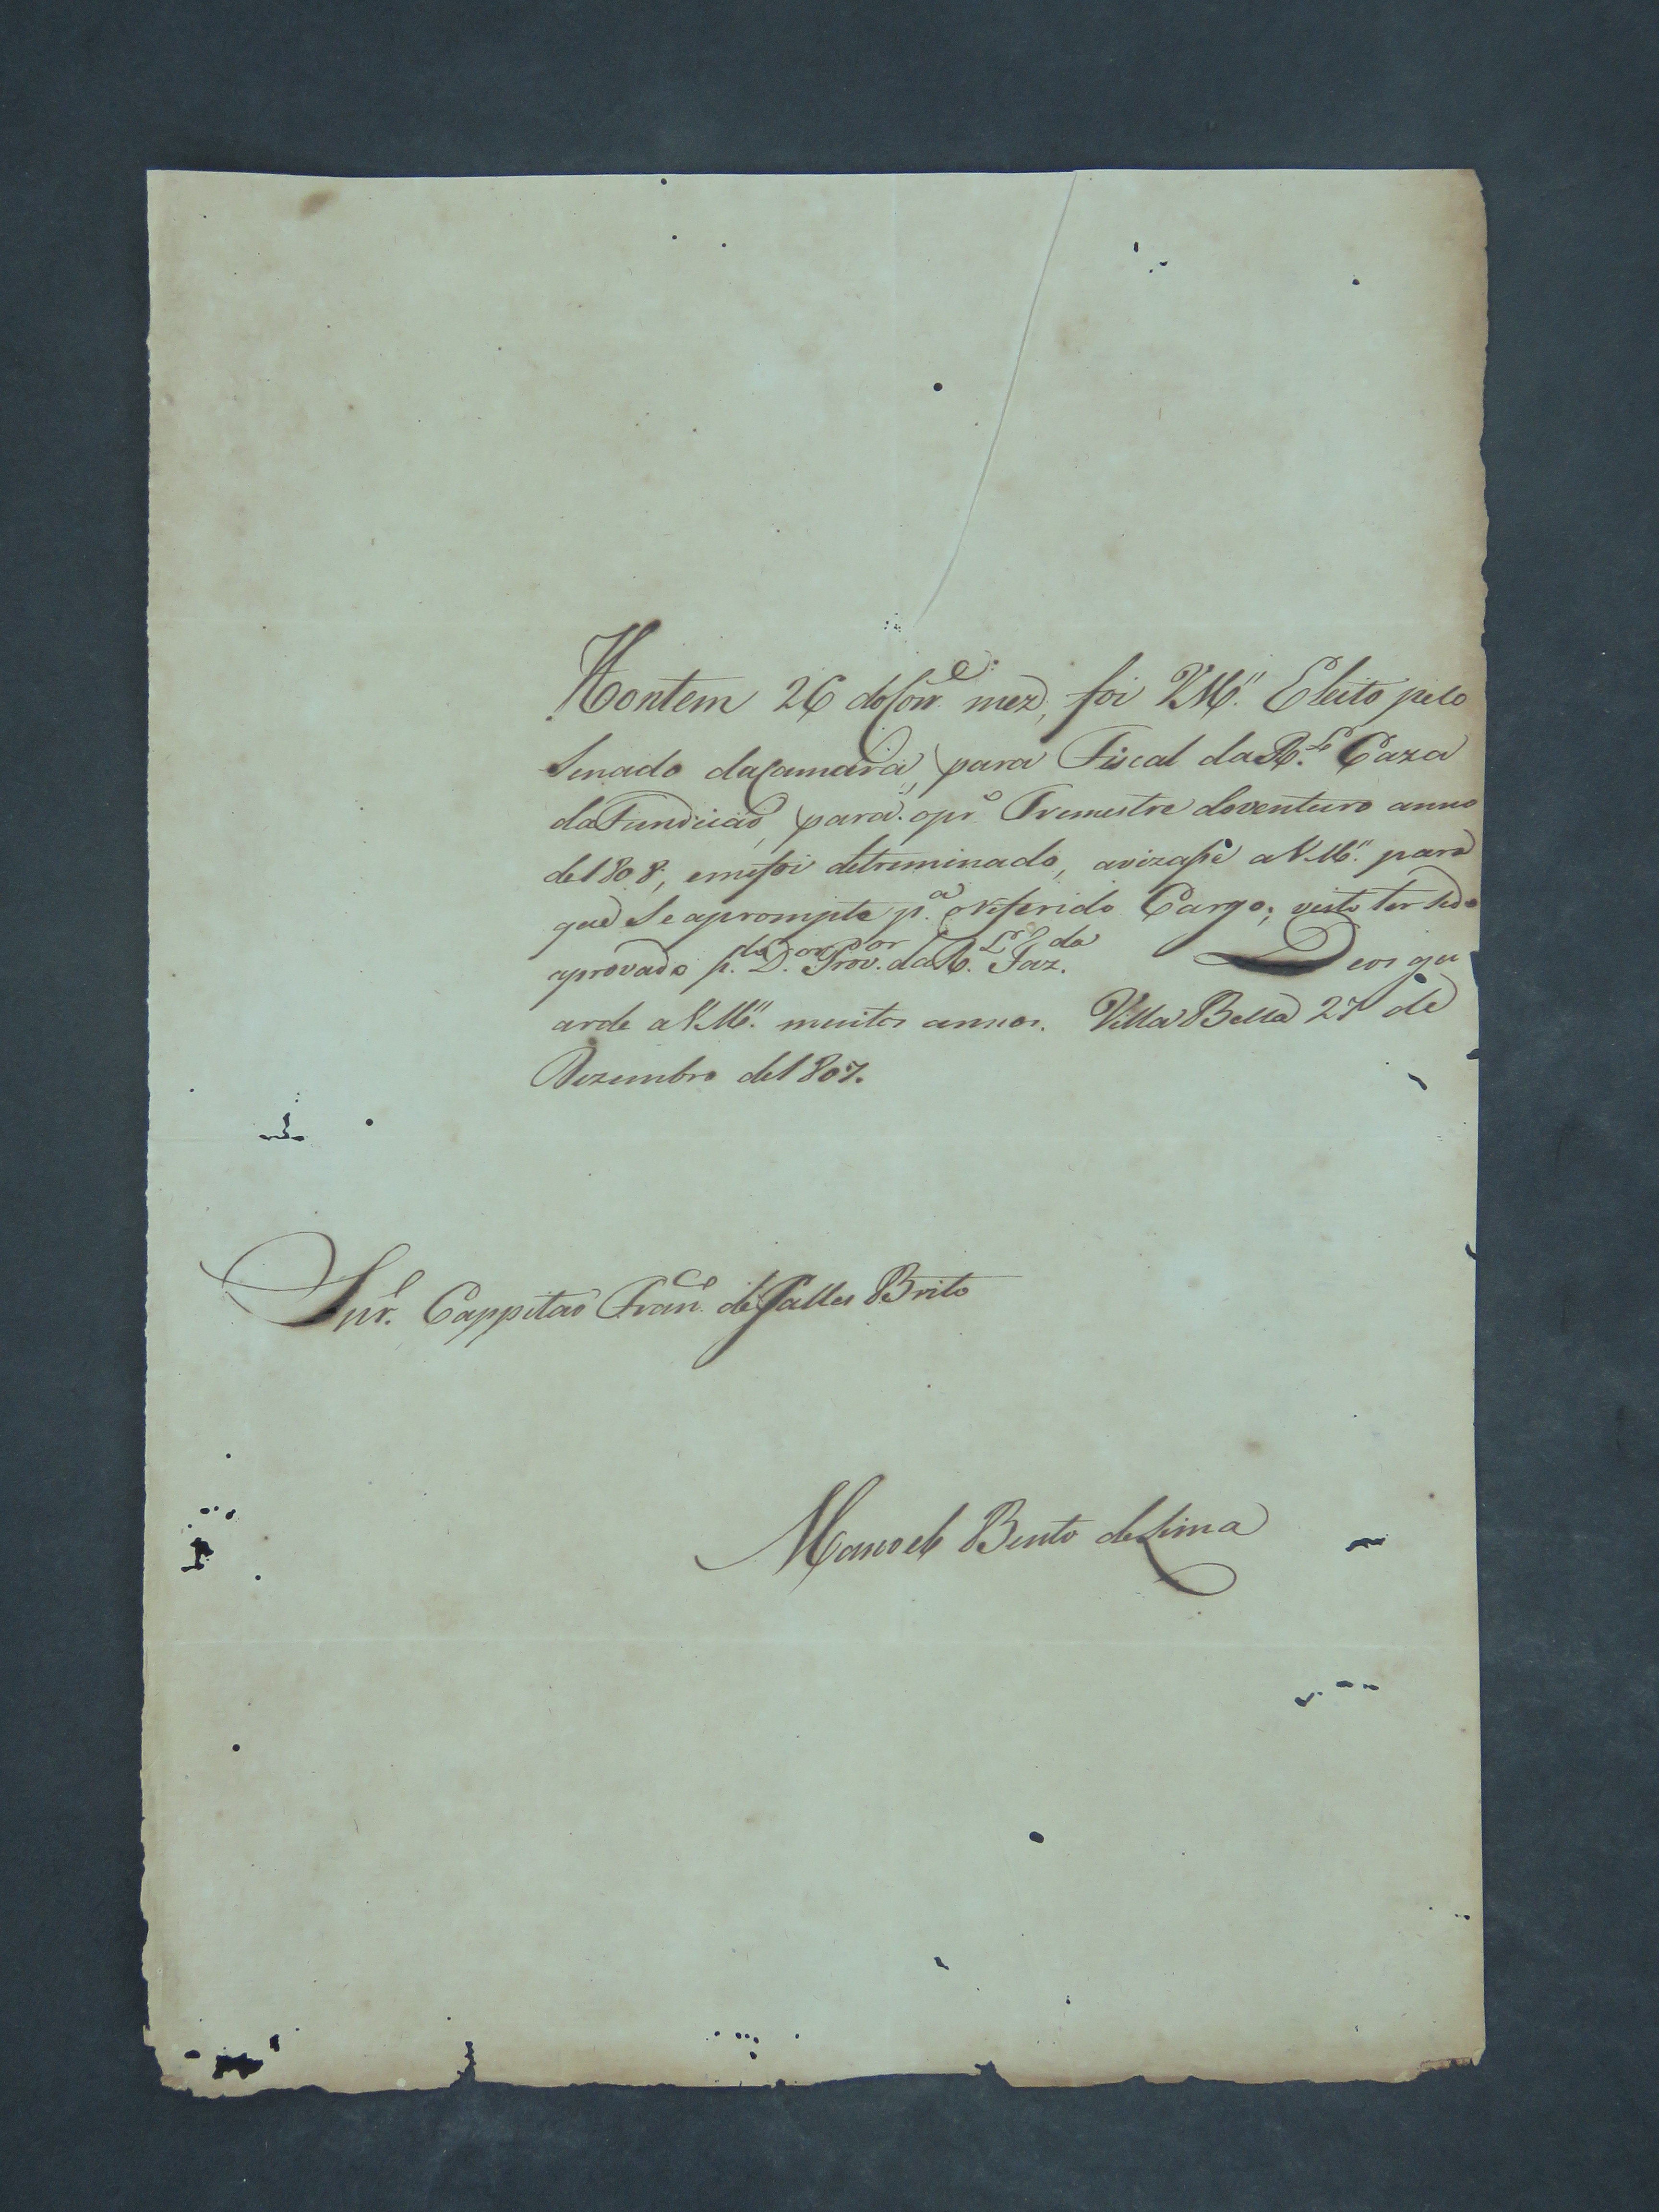 Hontem 26 do Corre. mez, foi VMce. Eleito pelo
Senado da Camara, para Fiscal da Rl. Caza
da Fundiciaõ, para o pro. Tremestre do venturo anno
de 1808, e me foi detreminado, avizase a VMce. para
que Se aprompte pa. o referido Cargo; visto ter sido
aprovado p. Dor. Provor. da Rl. Fazda. Deos gu
arde a VMce. muitos annos. Villa Bella 27 de
Dezembro de 1807.
Snr. Cappitaõ Franco. de Salles Brito
Manoel Bento de Lima